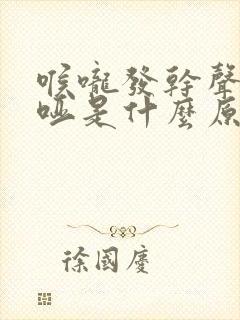 喉嚨發幹聲
啞是什麼原
徐國慶